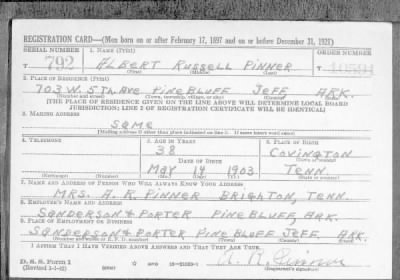 REGISTRATION CARD—(Men born on or after February 17, 1897 and on or before December 31, 1921)
SERIAL NUMBER 1. NAME (Print) ORDER NUMBER
T 792 ALBERT RUSSELL PINNER T 10591
(First) (Middle) (Last)
2. PLACE OF RESIDENCE (Print)
703 W. 5TH AVE PINE BLUFF JEFF ARK.
(Number and street) (Town, township, village, or city) (County) (State)
[THE PLACE OF RESIDENCE GIVEN ON THE LINE ABOVE WILL DETERMINE LOCAL BOARD
JURISDICTION; LINE 2 OF REGISTRATION CERTIFICATE WILL BE IDENTICAL]
3. MAILING ADDRESS
SAME
[Mailing address if other than place indicated on line 2. If same insert word same]
4. TELEPHONE 5. AGE IN YEARS 6. PLACE OF BIRTH
38 COVINGTON
DATE OF BIRTH (Town or county)
MAY 14 1903 TENN
(Exchange) (Number) (Mo.) (Day) (Yr.) (State or country)
7. NAME AND ADDRESS OF PERSON WHO WILL ALWAYS KNOW YOUR ADDRESS
MRS. A. R. PINNER BRIGHTON, TENN.
8. EMPLOYER'S NAME AND ADDRESS
SANDERSON & PORTER PINE BLUFF, ARK.
9. PLACE OF EMPLOYMENT OR BUSINESS
SANDERSON & PORTER PINE BLUFF JEFF ARK.
(Number and street or R. F. D. number) (Town) (County) (State)
I AFFIRM THAT I HAVE VERIFIED ABOVE ANSWERS AND THAT THEY ARE TRUE.
D. S. S. Form 1
(Revised 1-1-42) (over) 16—21630-1 A. R. Pinner
(Registrant's signature)